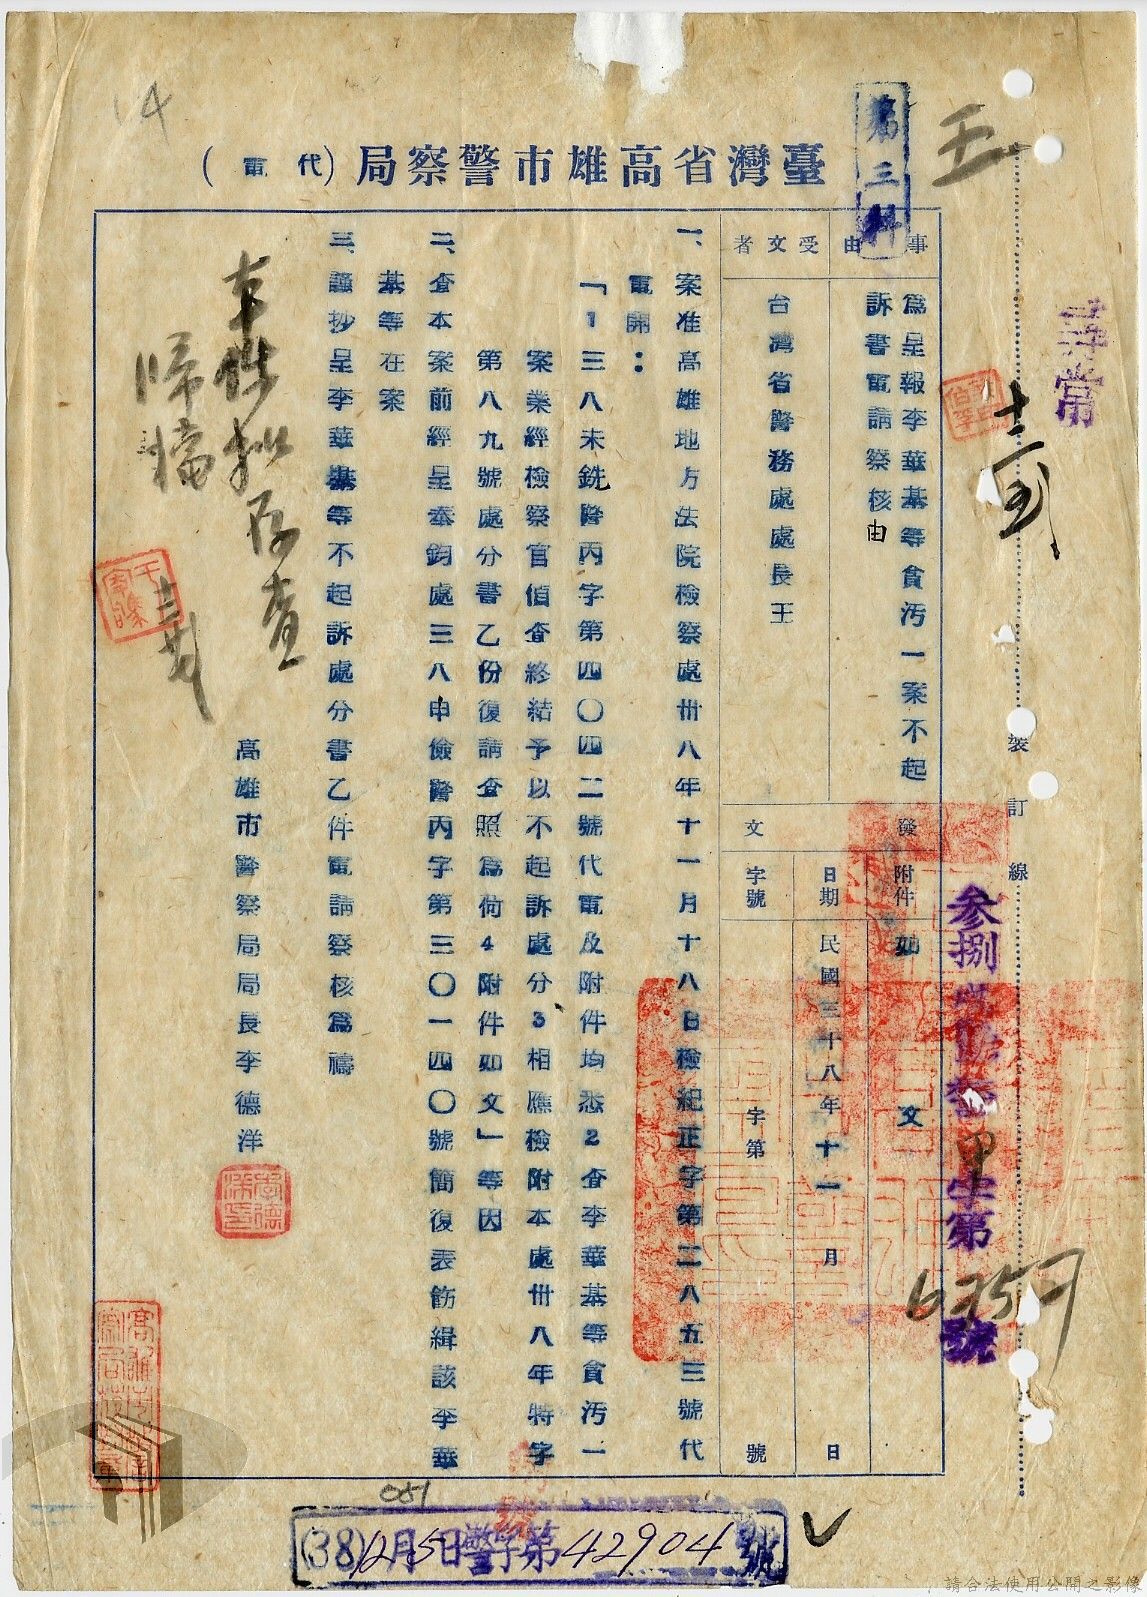 臺灣省高雄市警察局(代電)
第三科
事由
為呈報李華基等貪污一案不起
訴書電請察核由
受文者
台灣省警務處處長王
發文
附件
如文
日期
民國三十八年十一月日
字號
字第號
一、案准高雄地方法院檢察處卅八年十一月十八日檢紀正字第二八五三號代
電開：
「1三八未銑警丙字第四〇四二號代電及附件均悉2查李華基等貪污一
案業經檢察官偵查終結予以不起訴處分3相應檢附本處卅八年特字
第八九號處分書乙份復請查照為荷4附件如文」等因
二、查本案前經呈奉鈞處三八申儉警丙字第三〇一四〇號簡復表飭緝該李華
基等在案
三、謹抄呈李華基等不起訴處分書乙件電請察核為禱
高雄市警察局局長李德洋
本件擬存查
歸檔
尋常
裝訂線
甲字第
號
14
051
(38)12月5日警字第42904號
請合法使用公開之影像